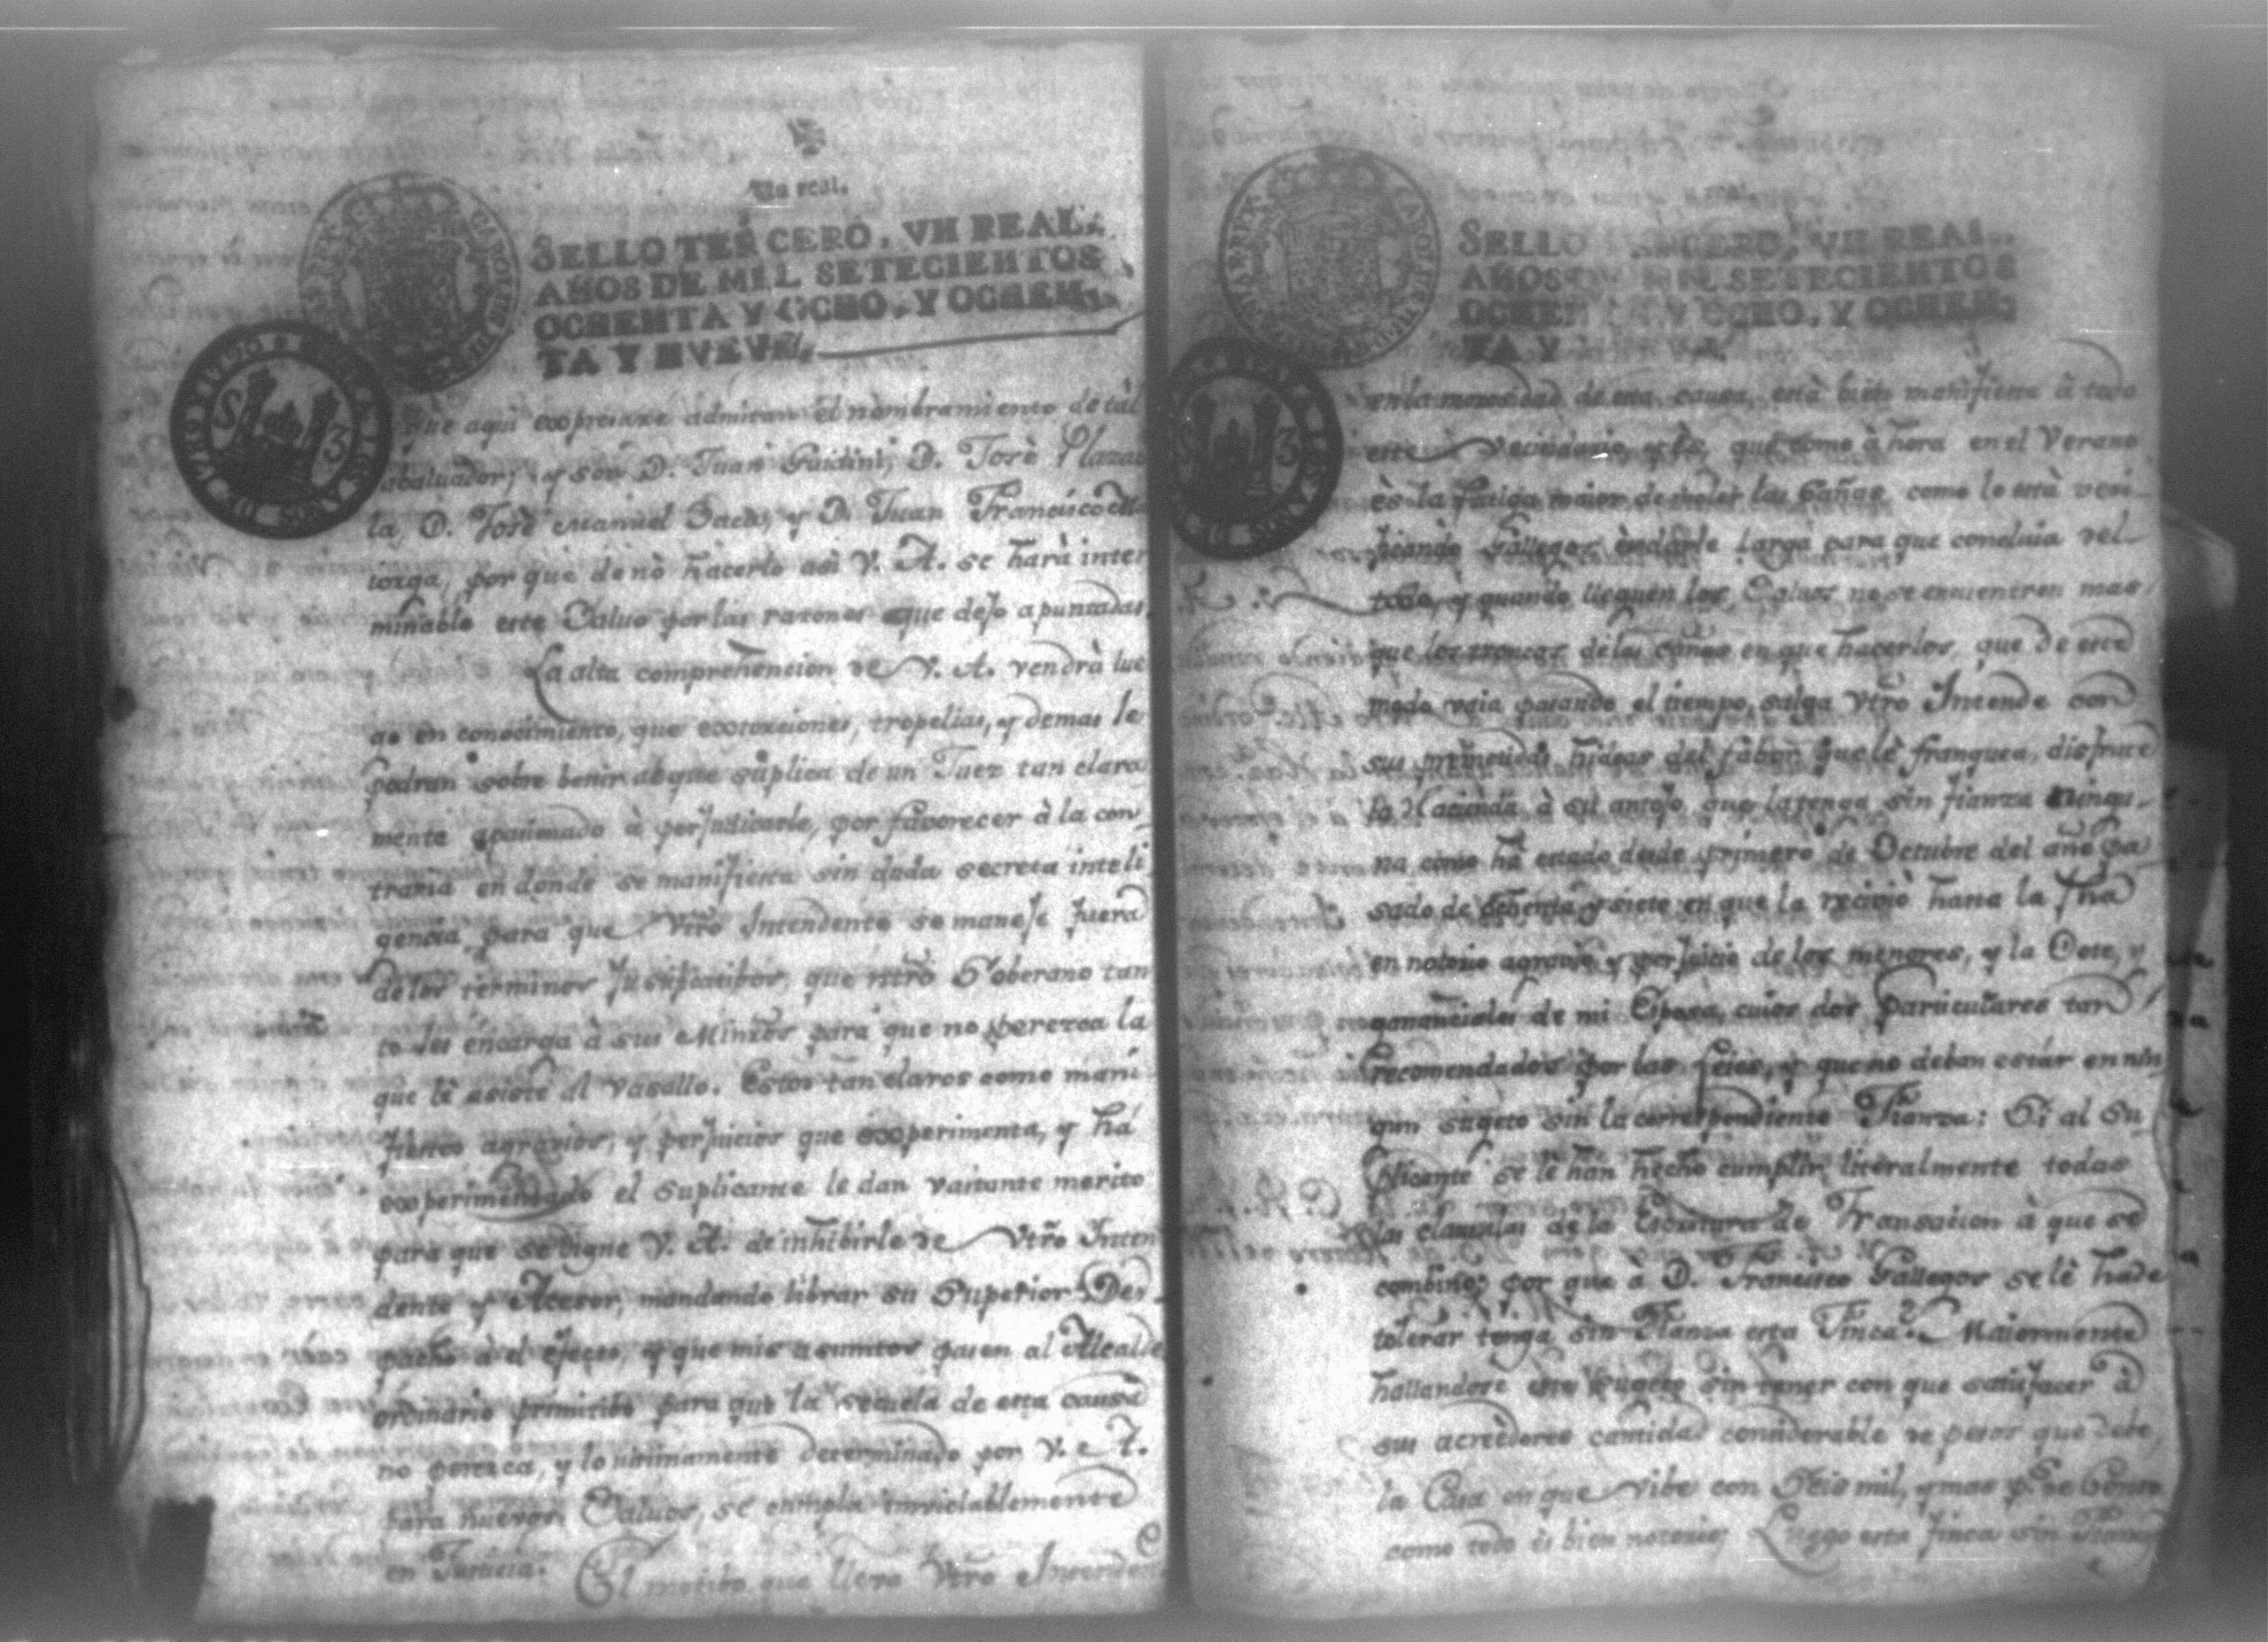 Un real.
SELLO TERCERO, VN REAL.
AÑOS DE MIL SETECIENTOS
OCHENTA Y OCHO, Y OCHEN-
TA Y NUEVE.
que aqui expresaré admitan el nombramiento de tál
abaluador; y son D. Juan Guidini, D. Jose Plaza
la, D. Josè Manuel Baca, y D. Juan Francisco
torga, por que de nò hacerlo asi V. A. se harà inter
minable este Caluo por las razones que dejo apuntadas.
La alta comprehencion de V. A. vendrà lue
go en conocimiento, que extorciones, tropelias, y demas le
podran sobre benir al que súplica de un Juez tan clara
mente apacionado à perjudicarle, por favorecer à la con
traria en donde se manifiesta sin duda secreta inteli
gencia para que Vtrô Intendente se maneje fuera
de los terminos Jusificatibos, que ntrô Soberano tan
to les encarga à sus Mintros para que no peresca la
que le asiste al Vasallo. Estos tan claros como mani
fiestos agravios, y perjuicios que experimenta, y há
experimentado el Suplicante le dan vastante merito
para que se digne V. A. de inhibirle de Vtrô Inten
dente y Acesor, mandando librar su Superior Des
pacho à el efecto, y que mis asuntos pasen al Alcalde
ordinario primitibo para que la secuela de esta causa
no peresca, y lo ultimamente determinado por V. A.
para nuevos Caluos, se cumpla inviolablemente
en Justicia. El motibo que lleva Vtrô Intenden
SELLO TERCERO, VN REAL.
AÑOS DE MIL SETECIENTOS
OCHENTA Y OCHO, Y OCHEN-
TA Y
en la morosidad de esta causa, està bien manifiesta à todo
este Vecindario, y es, que como à hora en el Verano
ès la fatiga maior de moler las Cañas, como lo està veri
ficando Gallegos, en darle larga para que concluia del
todo, y quando lleguen los Caluos no se encuentren mas
que los troncos de las cañas en que hacerlos, que de este
modo vaia pasando el tiempo, salga Vtrô Intende con
sus hideas del fabor que le franquea, disfrute
la Hacienda à su antojo, que la tenga sin fianza ningu
na como hà estado desde primero de Octubre del año pa
sado de ochenta y siete en que la recivió hasta la fha
en notorio agravio y perjuicio de los menores, y la Dote, y
gananciales de mi Esposa, cuios dos particulares tan
recomendados por las Leies, y que no deban estár en nin
gun sugeto sin la correspondiente Fianza: Si al Su
plicante se le han hecho cumplir literalmente todas
las clausulas de la Escritura de Transacion à que se
combino; por que à D. Francisco Gallegos se lè hade
tolerar tenga sin Fianza esta Finca? Maiormente
hallandose este Sugeto sin tener con que satisfacer à
sus acreèdores cantidad considerable de pesos que debe,
la Casa en que vibe con Seis mil, y mas p.s de Censo
como todo es bien notorio; Luego esta finca sin Fianz